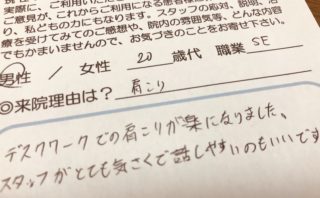 実際に、ご利用いただい
ご意見が、これからご利用になる患者様
り、私どもの力にもなります。スタッフの応対、説明、治
療を受けてみてのご感想や、院内の雰囲気等、どんな内容
でもかまいませんので、お気づきのことをお寄せ下さい。
男性 / 女性 20 歳代 職業 SE
◎来院理由は? 肩こり
デスクワークでの肩こりが楽になりました。
スタッフがとても気さくで話しやすいのもいいです